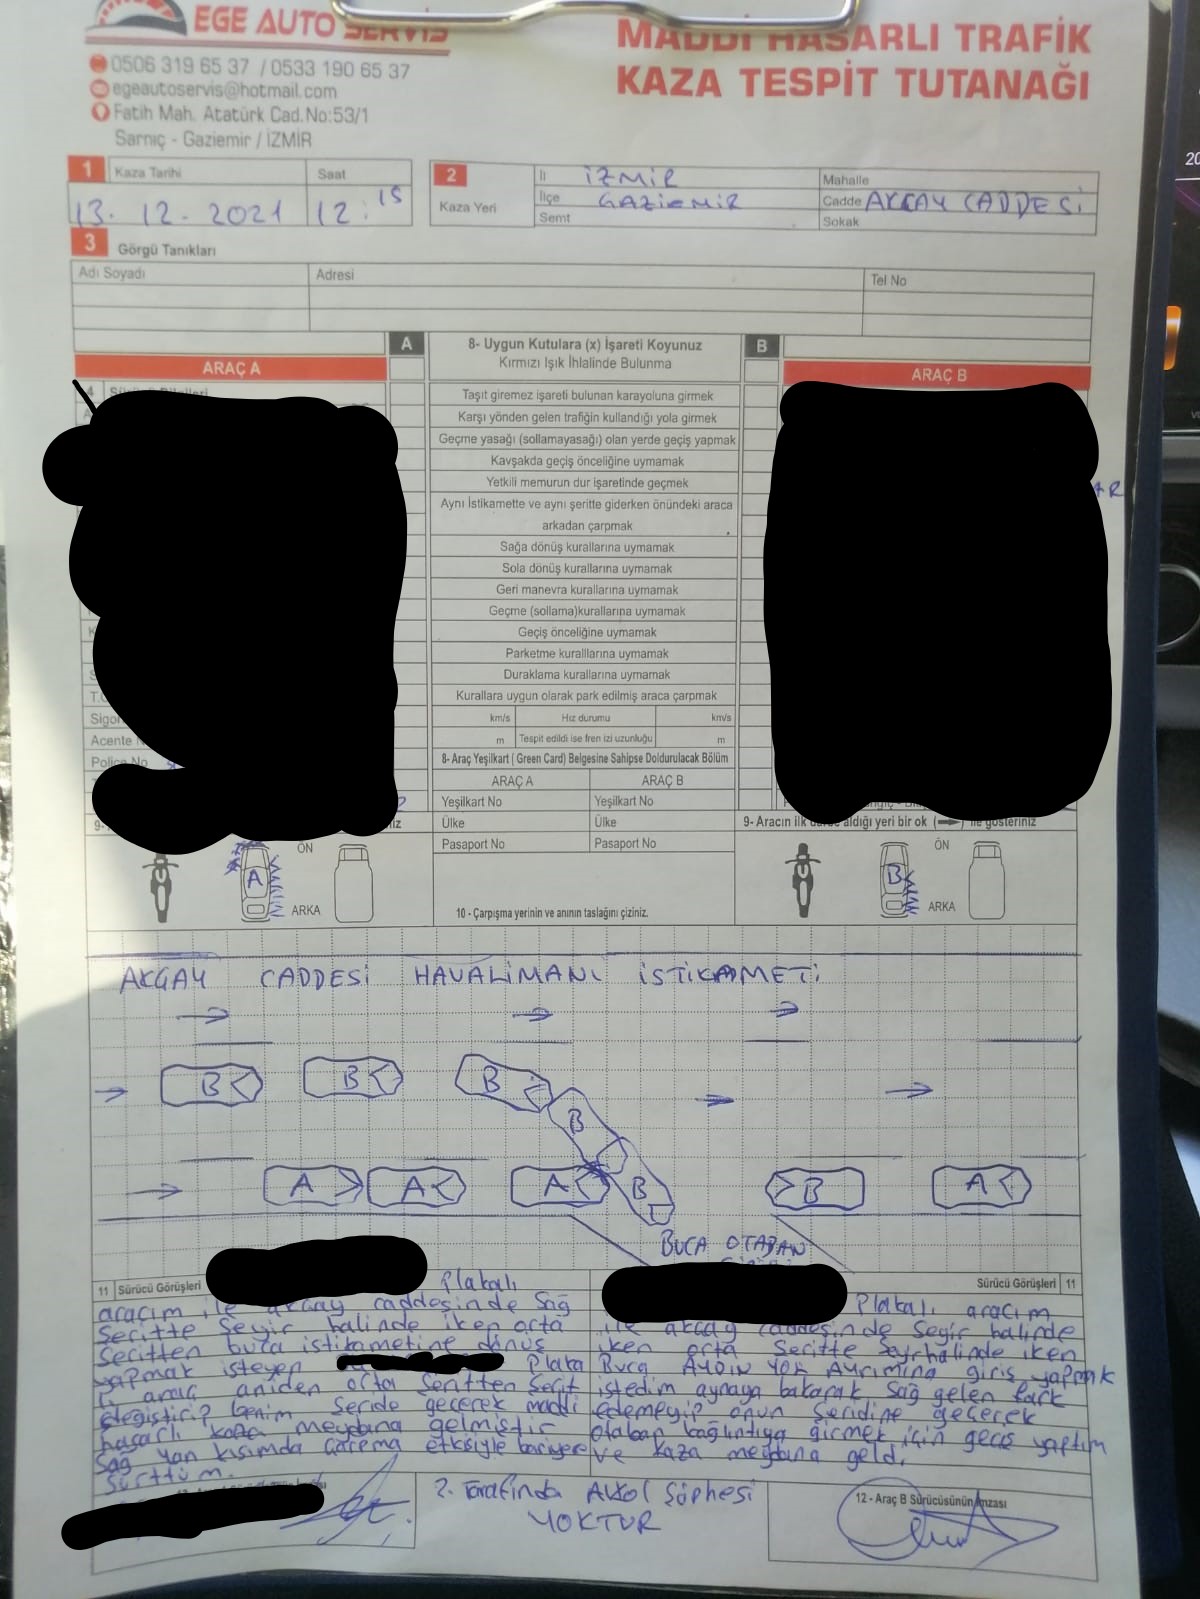 EGE AUTO SERVİS
MADDİ HASARLI TRAFİK
KAZA TESPİT TUTANAĞI
0506 319 65 37 / 0533 190 65 37
egeautoservis@hotmail.com
Fatih Mah. Atatürk Cad.No:53/1
Sarnıç - Gaziemir / İZMİR
1 Kaza Tarihi Saat
13.12.2021 12:15
2 Kaza Yeri
İl İZMİR Mahalle
İlçe GAZİEMİR Cadde AKÇAY CADDESİ
Semt Sokak
3 Görgü Tanıkları
Adı Soyadı Adresi Tel No
A 8- Uygun Kutulara (x) İşareti Koyunuz B
ARAÇ A Kırmızı Işık İhlalinde Bulunma ARAÇ B
4
Taşıt giremez işareti bulunan karayoluna girmek
Karşı yönden gelen trafiğin kullandığı yola girmek
Geçme yasağı (sollamayasağı) olan yerde geçiş yapmak
Kavşakda geçiş önceliğine uymamak
Yetkili memurun dur işaretinde geçmek
Aynı İstikamette ve aynı şeritte giderken önündeki araca
arkadan çarpmak
Sağa dönüş kurallarına uymamak
Sola dönüş kurallarına uymamak
Geri manevra kurallarına uymamak
Geçme (sollama)kurallarına uymamak
Geçiş önceliğine uymamak
Parketme kuralllarına uymamak
Duraklama kurallarına uymamak
Kurallara uygun olarak park edilmiş araca çarpmak
km/s Hız durumu km/s
m Tespit edildi ise fren izi uzunluğu m
Acente
Poliçe No
8- Araç Yeşilkart ( Green Card) Belgesine Sahipse Doldurulacak Bölüm
ARAÇ A ARAÇ B
Yeşilkart No Yeşilkart No
Ülke Ülke
Pasaport No Pasaport No
9- Aracın ilk aldığı yeri bir ok ile gösteriniz
ÖN A ARKA
ÖN B ARKA
10 - Çarpışma yerinin ve anının taslağını çiziniz.
AKÇAY CADDESİ HAVALİMANI İSTİKAMETİ
B B B B B
A A A B A
BUCA OTABAN
11 Sürücü Görüşleri Plakalı
aracım ile akçay caddesinde sağ
şeritte seyir halinde iken orta
şeritten buca istikametine dönüş
yapmak isteyen plaka
lı araç aniden orta şeritten şerit
değiştirip benim şeride geçerek maddi
hasarlı kaza meydana gelmiştir
Sağ yan kısımda çarpma etkisiyle bariyere
sürttüm.
Sürücü Görüşleri 11
Plakalı aracım
ile akçay caddesinde seyir halinde
iken orta şeritte seyrhalinde iken
Buca AYDIN YOK AYrımına giriş yapmak
istedim aynaya bakarak sağ gelen fark
edemeyip onun şeridine geçerek
otaban bağlantıya girmek için geçiş yaptım
ve kaza meydana geldi.
2. Tarafında Alkol Şüphesi
YOKTUR
12 - Araç B Sürücüsünün İmzası